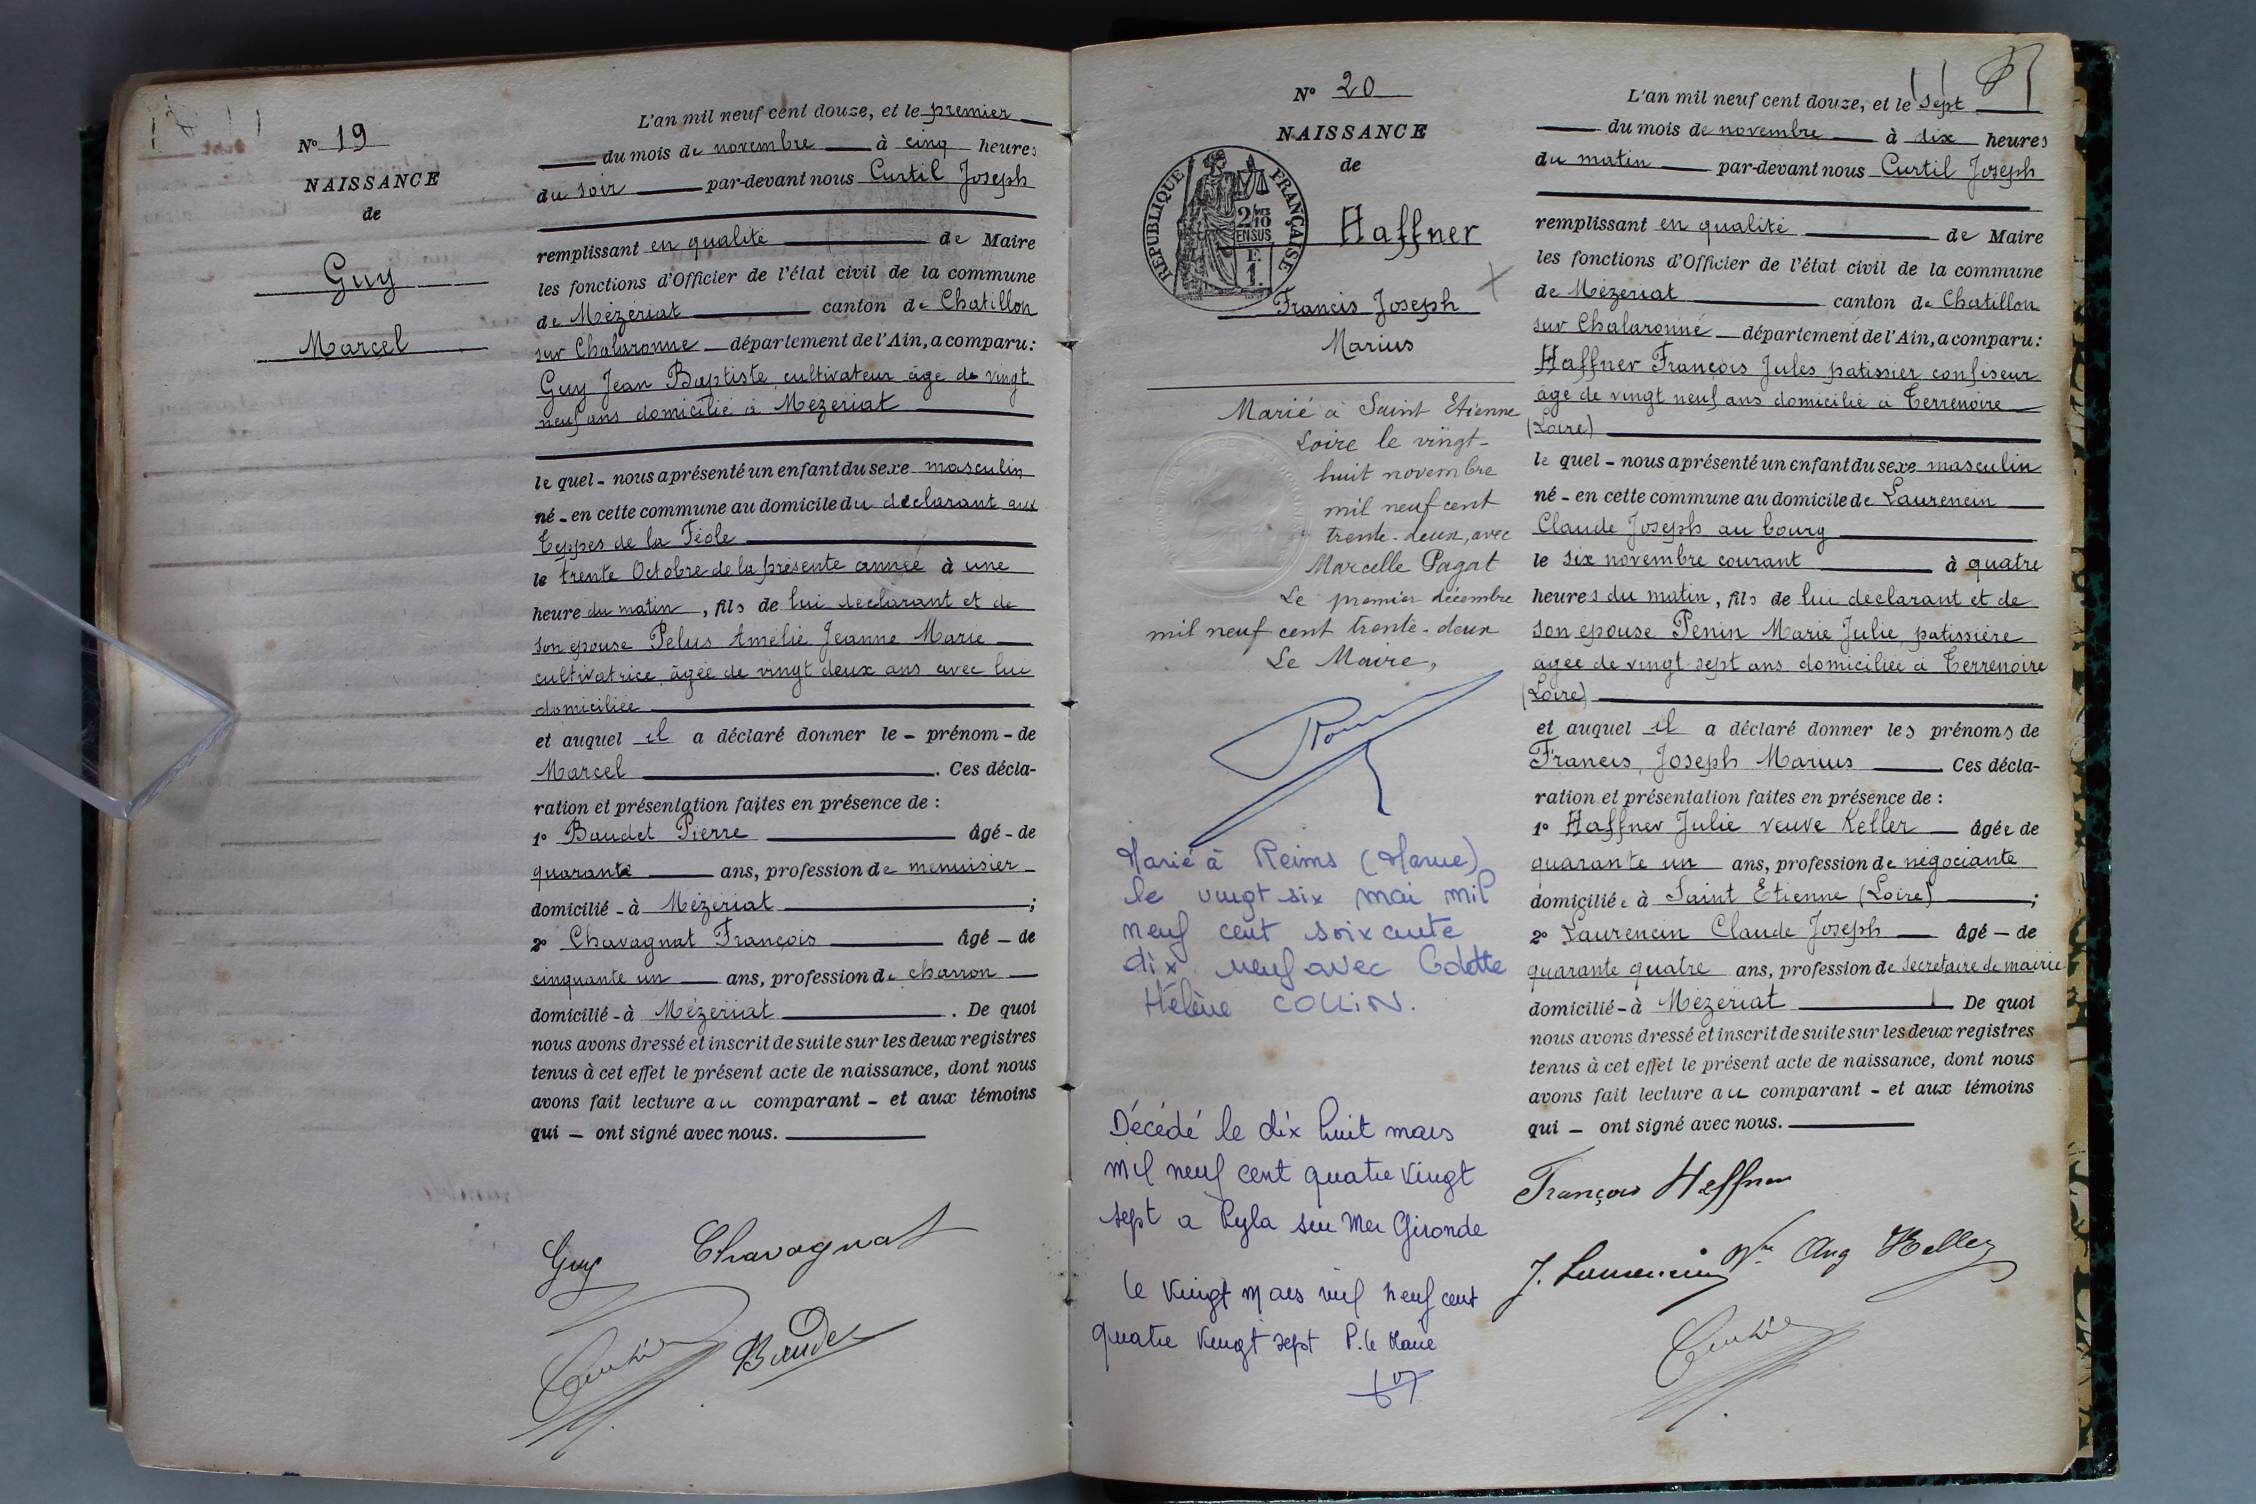 N° 19
NAISSANCE
de
Guy
Marcel
L'an mil neuf cent douze, et le premier
du mois de novembre à cinq heures
du soir par-devant nous Curtil Joseph
remplissant en qualité de Maire
les fonctions d'Officier de l'état civil de la commune
de Mézériat canton de Chatillon
sur Chalaronne département de l'Ain, a comparu:
Guy Jean Baptiste cultivateur âgé de vingt
neuf ans domicilié à Mézériat
le quel - nous a présenté un enfant du sexe masculin
né - en cette commune au domicile du déclarant aux
Teppes de la Féole
le trente Octobre de la présente année à une
heure du matin, fils de lui déclarant et de
son épouse Pelus Amélie Jeanne Marie
cultivatrice âgée de vingt deux ans avec lui
domiciliée
et auquel il a déclaré donner le - prénom - de
Marcel. Ces décla-
ration et présentation faites en présence de :
1° Baudet Pierre âgé - de
quarante ans, profession de menuisier
domicilié - à Mézériat ;
2° Chavagnat François âgé - de
cinquante un ans, profession de charron
domicilié - à Mézériat. De quoi
nous avons dressé et inscrit de suite sur les deux registres
tenus à cet effet le présent acte de naissance, dont nous
avons fait lecture au comparant - et aux témoins
qui - ont signé avec nous.
Guy Chavagnat
Curtil Baudet
N° 20
NAISSANCE
de
RÉPUBLIQUE FRANÇAISE
2/10 EN SUS
F. 1.
Haffner
Francis Joseph
Marius
Marié à Saint Etienne
Loire le vingt-
huit novembre
mil neuf cent
trente-deux, avec
Marcelle Pagat
Le premier décembre
mil neuf cent trente-deux
Le Maire,
Marié à Reims (Marne)
le vingt six mai mil
neuf cent soixante
dix neuf avec Odette
Hélène COLLIN.
Décédé le dix huit mars
mil neuf cent quatre vingt
sept a Pyla sur Mer Gironde
le vingt mars mil neuf cent
quatre vingt sept P. le Maire
L'an mil neuf cent douze, et le sept
du mois de novembre à dix heures
du matin par-devant nous Curtil Joseph
remplissant en qualité de Maire
les fonctions d'Officier de l'état civil de la commune
de Mézériat canton de Chatillon
sur Chalaronne département de l'Ain, a comparu:
Haffner François Jules patissier confiseur
âgé de vingt neuf ans domicilié à Terrenoire
(Loire)
le quel - nous a présenté un enfant du sexe masculin
né - en cette commune au domicile de Laurencin
Claude Joseph au bourg
le six novembre courant à quatre
heures du matin, fils de lui déclarant et de
son épouse Penin Marie Julie, patissière
âgée de vingt sept ans domiciliée à Terrenoire
(Loire)
et auquel il a déclaré donner les prénoms de
Francis, Joseph Marius Ces décla-
ration et présentation faites en présence de :
1° Haffner Julie veuve Keller âgée de
quarante un ans, profession de négociante
domiciliée à Saint Etienne (Loire) ;
2° Laurencin Claude Joseph âgé - de
quarante quatre ans, profession de secrétaire de mairie
domicilié - à Mézériat De quoi
nous avons dressé et inscrit de suite sur les deux registres
tenus à cet effet le présent acte de naissance, dont nous
avons fait lecture au comparant - et aux témoins
qui - ont signé avec nous.
François Haffner
J. Laurencin Vve Aug Keller
Curtil